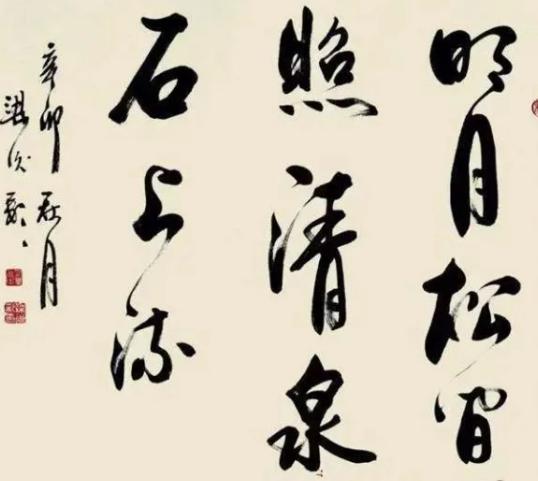 明月松间
照清泉
石上流
辛卯秋月